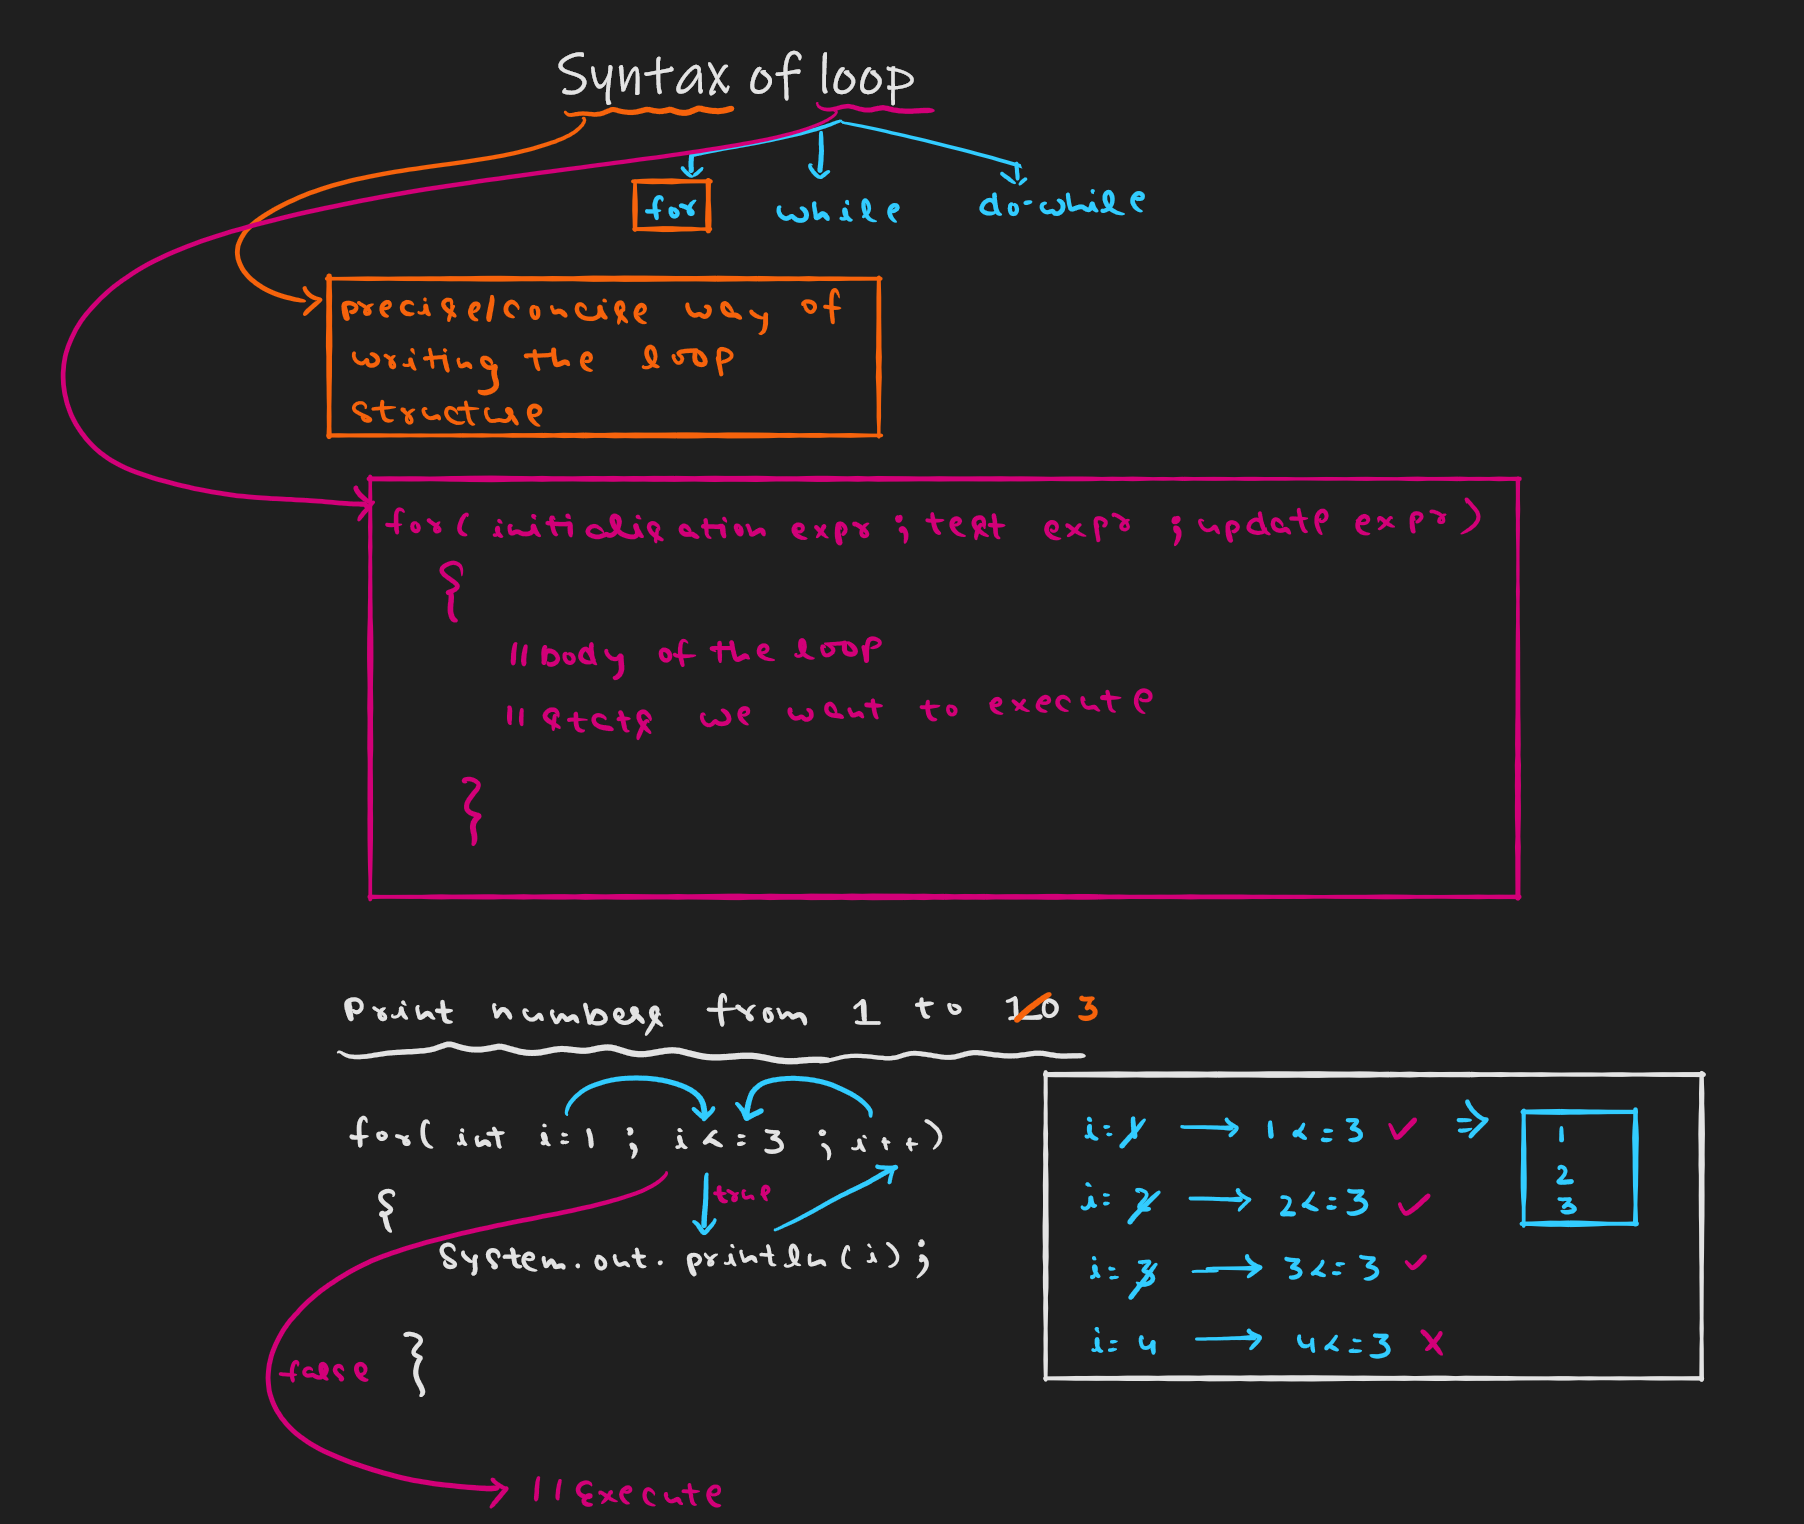 Syntax of loop
for while do-while
precise/concise way of
writing the loop
structure
for( initialisation expr ; test expr ; update expr )
{
//body of the loop
//stats we want to execute
}
Print numbers from 1 to 10 3
for( int i=1 ; i<=3 ; i++)
{
true
System.out.println(i);
false
}
//Execute
i=1 → 1<=3 ✓ ⇒ 1
2
i=2 → 2<=3 ✓ 3
i=3 → 3<=3 ✓
i=4 → 4<=3 X